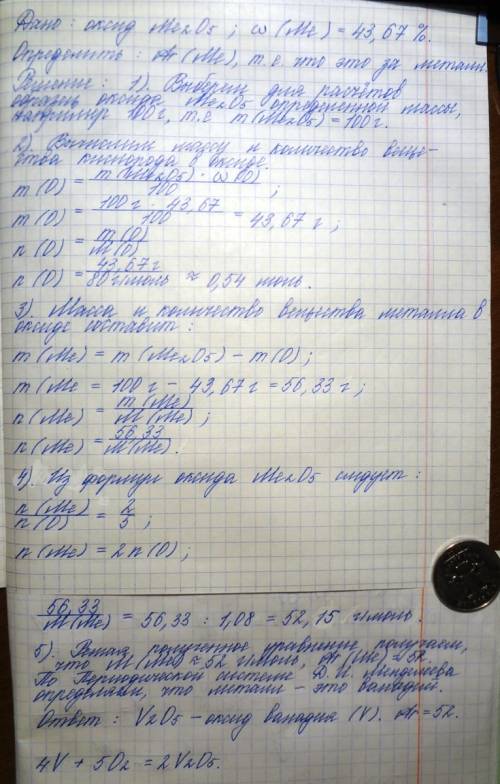 Дано: оксид Me₂O₅; ω(Me) = 43,67 %.
Определить: Ar(Me), т.е. что это за металл.
Решение: 1). Выберем для расчётов
образец оксида Me₂O₅ определенной массы,
например 100 г, т.е m(Me₂O₅) = 100 г.
2). Вычислим массу и количество веще-
ства кислорода в оксиде.
m(O) = m(Me₂O₅) · ω(O) / 100 ;
m(O) = 100 г · 43,67 / 100 = 43,67 г;
n(O) = m(O) / M(O)
n(O) = 43,67 г / 80 г/моль ≈ 0,54 моль.
3). Масса и количество вещества металла в
оксиде составит:
m(Me) = m(Me₂O₅) – m(O);
m(Me = 100 г – 43,67 г = 56,33 г;
n(Me) = m(Me) / M(Me) ;
n(Me) = 56,33 / M(Me) .
4). Из формулы оксида Me₂O₅ следует:
n(Me) / n(O) = 2 / 5 ;
n(Me) = 2n(O);
56,33 / M(Me) = 56,33 : 1,08 = 52,15 г/моль.
5). Решая полученное уравнение получаем,
что M(Me) ≈ 52 г/моль, Ar(Me) ≈ 52.
По Периодической системе Д.И. Менделеева
определяем, что металл – это ванадий.
Ответ: V₂O₅ – оксид ванадия (V). Ar = 52.
4V + 5O₂ = 2V₂O₅.